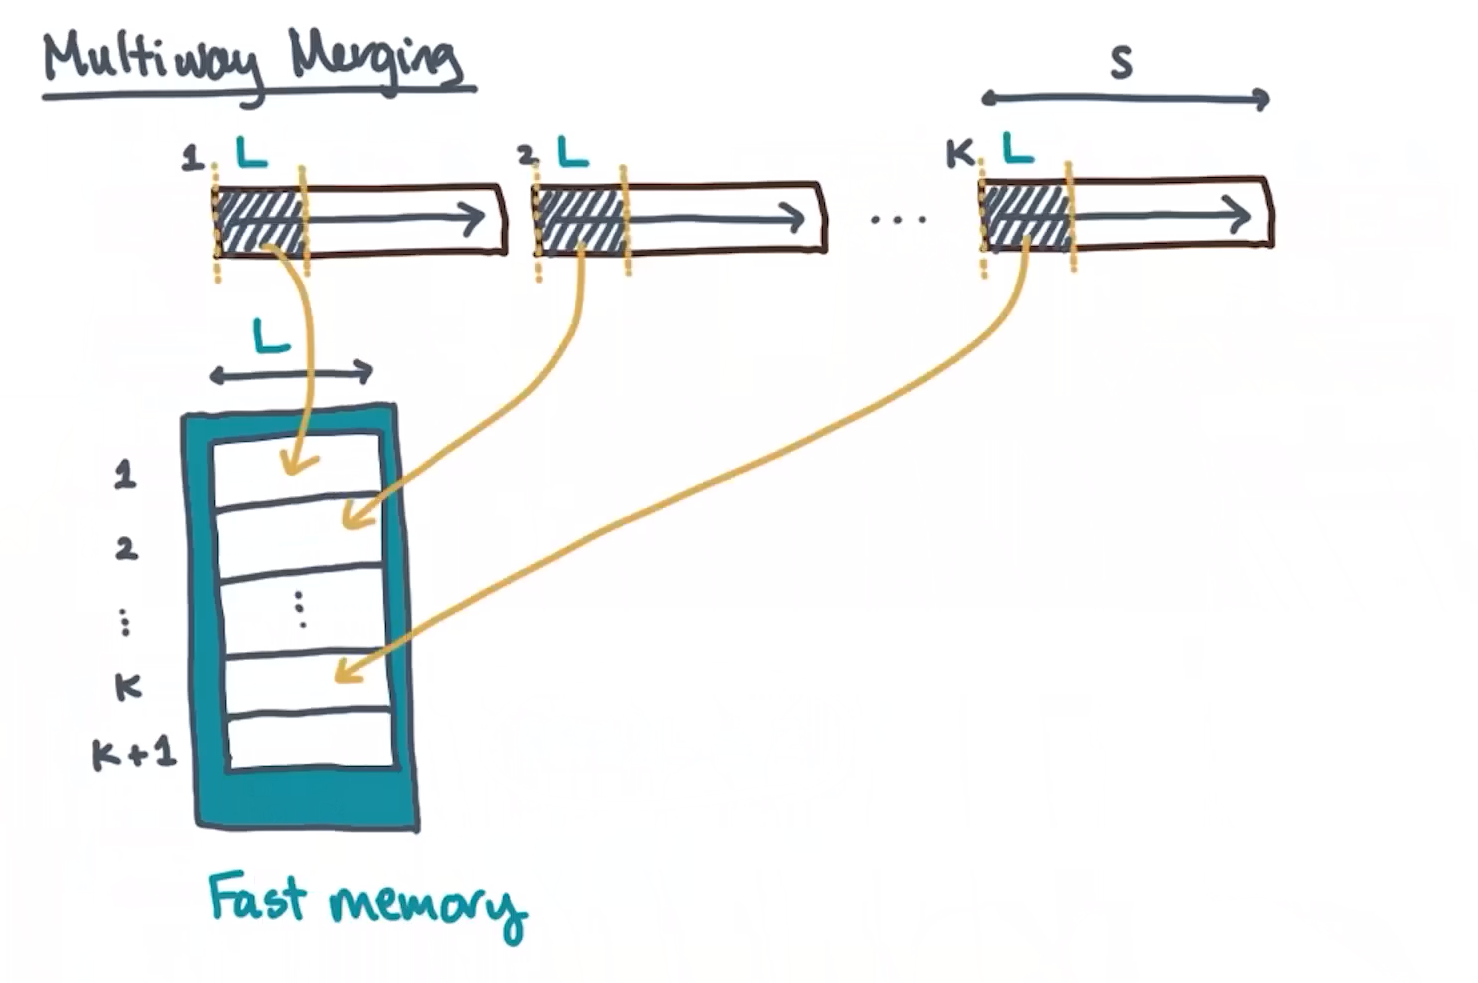 Multiway Merging
S
1 L 2 L ... K L
L
1
2
⋮ ⋮
K
K+1
Fast memory